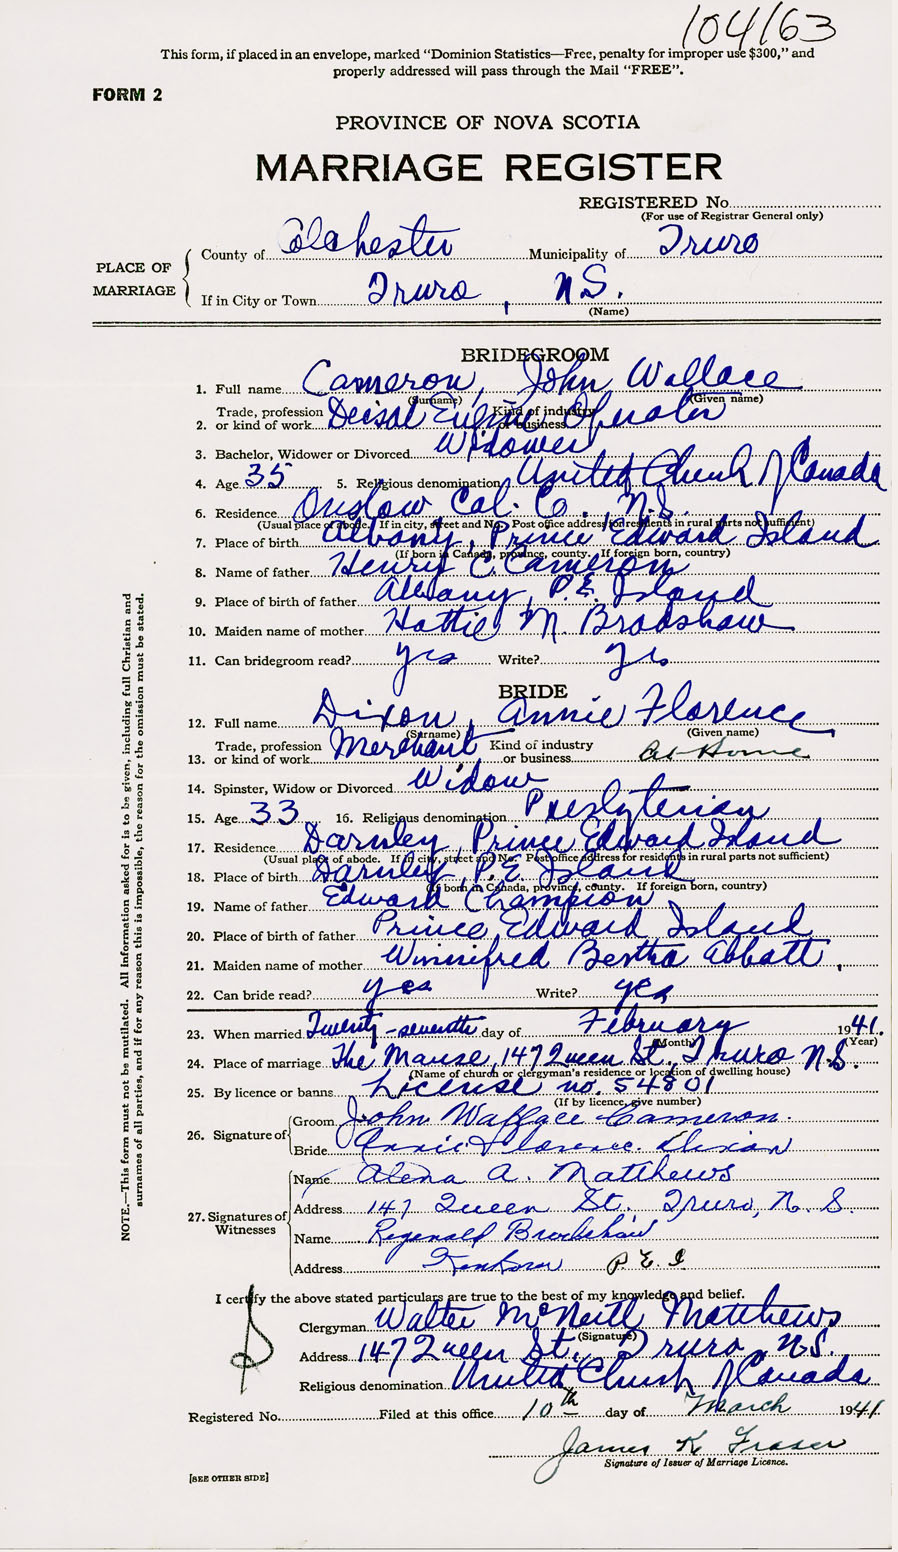 104163
This form, if placed in an envelope, marked “Dominion Statistics—Free, penalty for improper use $300,” and
properly addressed will pass through the Mail “FREE”.
FORM 2
PROVINCE OF NOVA SCOTIA
MARRIAGE REGISTER
REGISTERED No.
(For use of Registrar General only)
PLACE OF MARRIAGE
County of Colchester Municipality of Truro
If in City or Town Truro, N.S.
(Name)
BRIDEGROOM
1. Full name Cameron, John Wallace
(Surname) (Given name)
Trade, profession Kind of industry
2. or kind of work Deisal Engine Operator or business
3. Bachelor, Widower or Divorced Widower
4. Age 35 5. Religious denomination United Church of Canada
6. Residence Onslow Col. Co. N.S.
(Usual place of abode. If in city, street and No. Post office address for residents in rural parts not sufficient)
7. Place of birth Albany, Prince Edward Island
(If born in Canada, province, county. If foreign born, country)
8. Name of father Henry C. Cameron
9. Place of birth of father Albany, P.E. Island
10. Maiden name of mother Hattie M. Bradshaw
11. Can bridegroom read? yes Write? yes
BRIDE
12. Full name Dixon, Annie Florence
(Surname) (Given name)
Trade, profession Kind of industry
13. or kind of work Merchant or business At Home
14. Spinster, Widow or Divorced Widow
15. Age 33 16. Religious denomination Presbyterian
17. Residence Darnley, Prince Edward Island
(Usual place of abode. If in city, street and No. Post office address for residents in rural parts not sufficient)
18. Place of birth Darnley, P.E. Island
(If born in Canada, province, county. If foreign born, country)
19. Name of father Edward Champion
20. Place of birth of father Prince Edward Island
21. Maiden name of mother Winnifred Bertha Abbott.
22. Can bride read? yes Write? yes
23. When married Twenty-seventh day of February 1941.
(Month) (Year)
24. Place of marriage The Manse, 147 Queen St., Truro N.S.
(Name of church or clergyman's residence or location of dwelling house)
25. By licence or banns License no. 54801
(If by licence, give number)
26. Signature of
Groom John Wallace Cameron.
Bride Annie Florence Dixon
27. Signatures of Witnesses
Name Alena A. Matthews
Address 147 Queen St. Truro, N.S.
Name Reginald Bradshaw
Address P.E.I
I certify the above stated particulars are true to the best of my knowledge and belief.
Clergyman Walter McNeill Matthews
(Signature)
Address 147 Queen St., Truro, N.S.
Religious denomination United Church of Canada
Registered No. Filed at this office 10th day of March 1941
James K Fraser
Signature of Issuer of Marriage Licence.
[SEE OTHER SIDE]
NOTE.—This form must not be mutilated. All information asked for is to be given, including full Christian and
surnames of all parties, and if for any reason this is impossible, the reason for the omission must be stated.